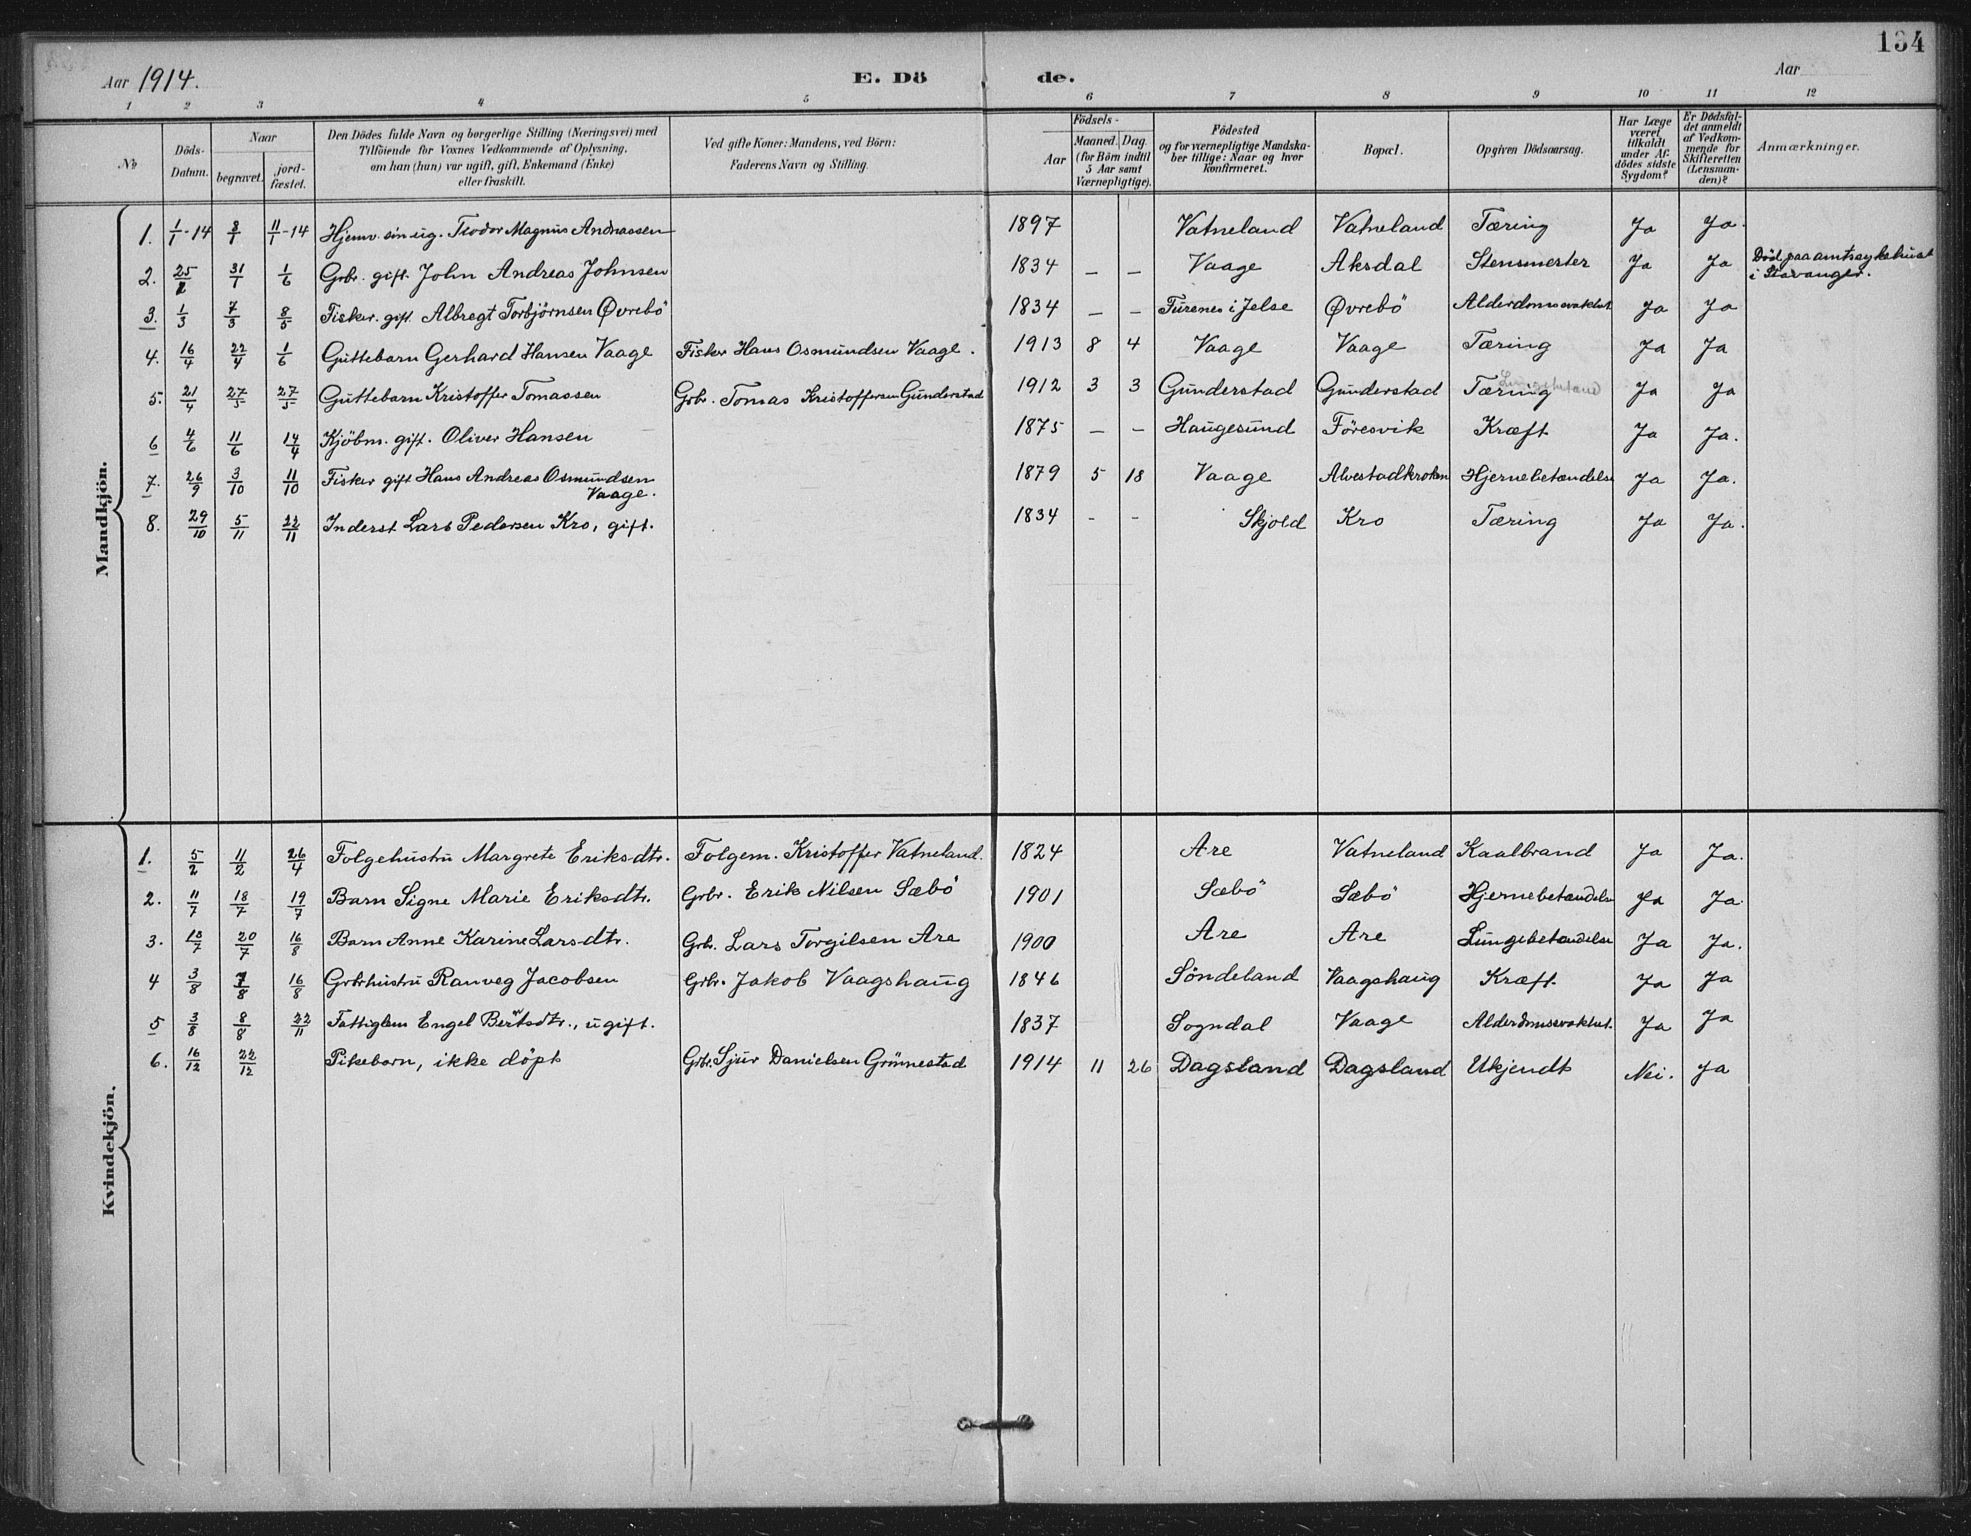 134
Aar 1914. E. Dö de. Aar
1 2 3 4 5 6 7 8 9 10 11 12
No
Döds-Datum.
Naar
begravet.
jord-fæstet.
Den Dödes fulde Navn og borgerlige Stilling (Næringsvei) med
Tilföiende for Voxnes Vedkommende af Oplysning,
om han (hun) var ugift, gift, Enkemand (Enke)
eller fraskilt.
Ved gifte Koner: Mandens, ved Börn:
Faderens Navn og Stilling.
Födsels-
Aar
Maaned. Dag.
(for Börn indtil
5 Aar samt
Værnepligtige).
Födested
og for værnepligtige Mandska-
ber tillige: Naar og hvor
konfirmeret.
Bopæl.
Opgiven Dödsaarsag.
Har Læge
været
tilkaldt
under Af-
dödes sidste
Sygdom?
Er Dödsfal-
det anmeldt
af Vedkom-
mende for
Skifteretten
(Lensman-
den)?
Anmærkninger.
Mandkjön.
1. 1/1-14 8/1 11/1-14 Hjemv. sön ug. Teodor Magnus Andreassen 1897 — — Vatneland Vatneland Tæring Ja Ja.
2. 25/2 31/1 1/6 Grbr. gift. John Andreas Johnsen 1834 — — Vaage Aksdal Ja Ja Död paa amtssykehuset
i Stavanger.
3. 1/3 7/3 8/5 Fisker. gift. Albregt Torbjørnsen Øvrebö 1834 — — Furenes i Jelse Øvrebö Alderdomssvakhet Ja Ja
4. 16/4 22/4 1/6 Guttebarn Gerhard Hansen Vaage Fisker Hans Osmundsen Vaage. 1913 8 4 Vaage Vaage Tæring Ja Ja
5. 21/4 27/5 27/5 Guttebarn Kristoffer Tomassen Grbr. Tomas Kristoffersen Gunderstad 1912 3 3 Gunderstad Gunderstad Tæring Ja Ja
6 4/6 11/6 14/4 Kjöbm. gift. Oliver Hansen 1875 — — Haugesund Föresvik Kræft Ja Ja.
7. 26/9 3/10 11/10 Fisker gift Hans Andreas Osmundsen
Vaage. 1879 5 18 Vaage Alvestadkroken Hjernebetændelse Ja Ja.
8. 29/10 5/11 22/11 Inderst Lars Pedersen Kro, gift. 1834 - - Skjold Kro Tæring Ja Ja.
Kvindekjön.
1. 5/2 11/2 26/4 Folgehustru Margrete Eriksdtr. Folgem. Kristoffer Vatneland. 1824 Are Vatneland Kaalbrand Ja Ja.
2. 11/7 18/7 19/7 Barn Signe Marie Eriksdtr. Grbr. Erik Nilsen Sæbö 1901 Sæbö Sæbö Hjernebetændelse Ja Ja.
3. 13/7 20/7 16/8 Barn Anne Karine Larsdtr. Grbr. Lars Torgilsen Are 1900 Are Are Lungebetændelse Ja Ja.
4 3/8 7/8 16/8 Grbrhustru Ranveg Jacobsen Grbr. Jakob Vaagshaug 1846 Söndeland Vaagshaug Kræft. Ja Ja
5 3/8 8/8 22/11 Fattiglem Engel Bertsdtr., ugift. 1837 Sogndal Vaage Alderdomssvakhet. Ja Ja
6. 16/12 22/12 Pikebarn, ikke döpt Grbr. Sjur Danielsen Grönnestad 1914 11 26 Dagsland Dagsland Ukjendt Nei. Ja